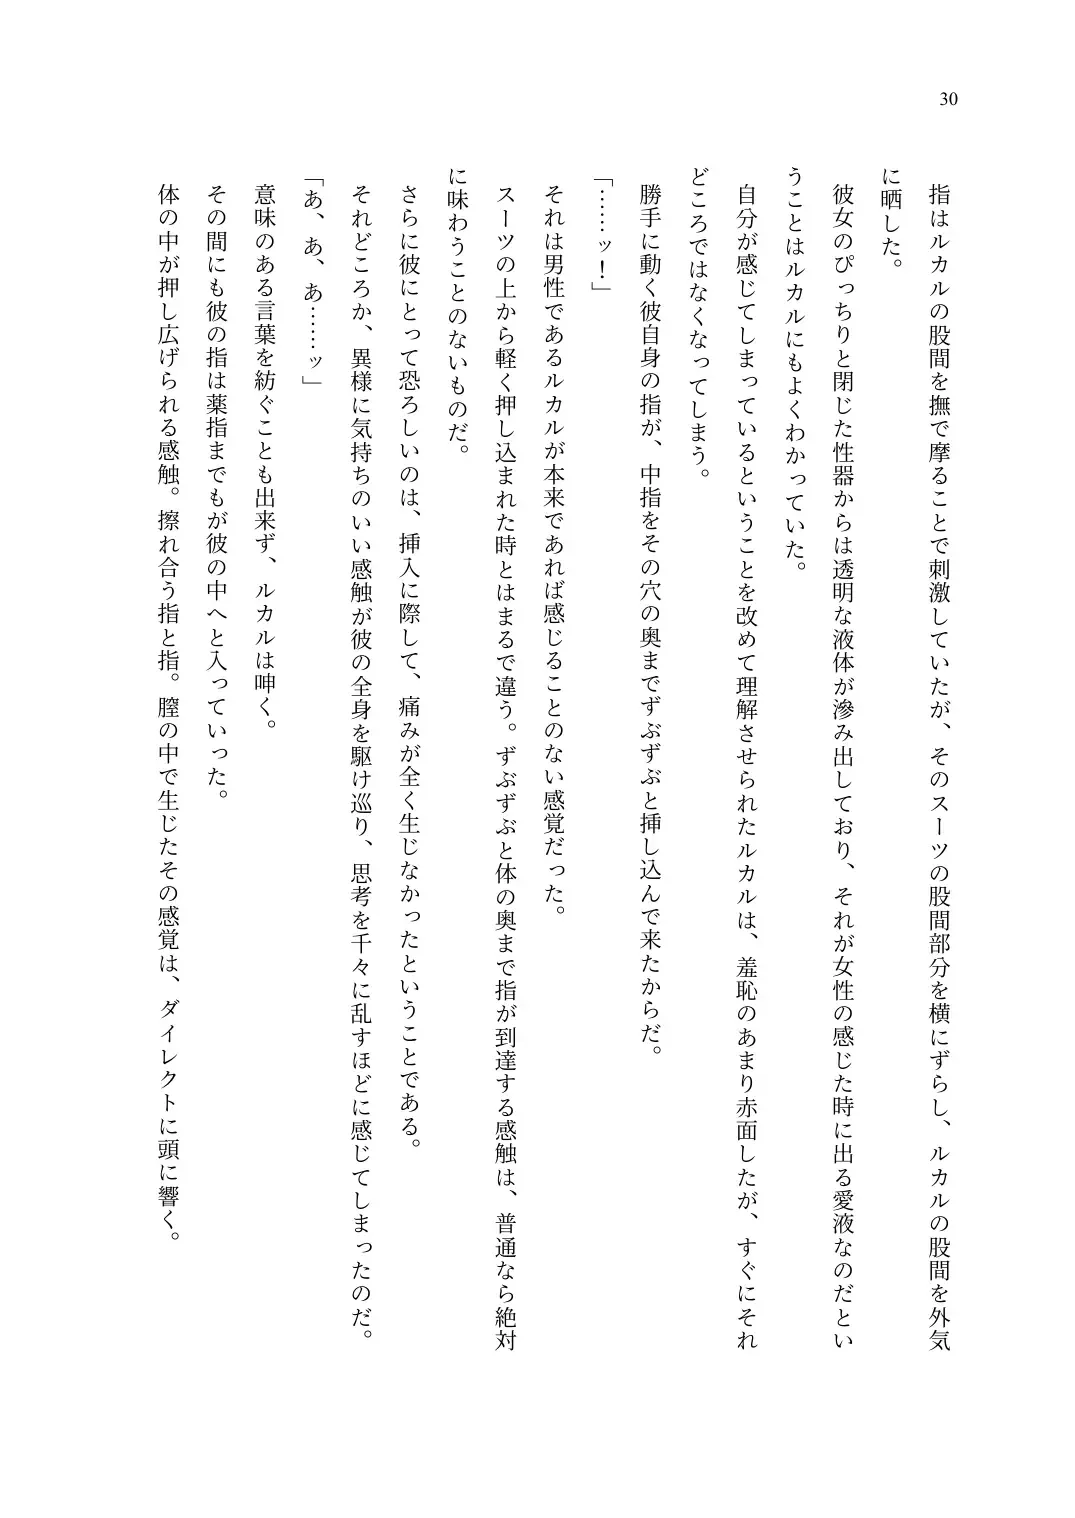 30
指はルカルの股間を撫で摩ることで刺激していたが、そのスーツの股間部分を横にずらし、ルカルの股間を外気
に晒した。
彼女のぴっちりと閉じた性器からは透明な液体が滲み出しており、それが女性の感じた時に出る愛液なのだとい
うことはルカルにもよくわかっていた。
自分が感じてしまっているということを改めて理解させられたルカルは、羞恥のあまり赤面したが、すぐにそれ
どころではなくなってしまう。
勝手に動く彼自身の指が、中指をその穴の奥までずぶずぶと挿し込んで来たからだ。
「……ッ！」
それは男性であるルカルが本来であれば感じることのない感覚だった。
スーツの上から軽く押し込まれた時とはまるで違う。ずぶずぶと体の奥まで指が到達する感触は、普通なら絶対
に味わうことのないものだ。
さらに彼にとって恐ろしいのは、挿入に際して、痛みが全く生じなかったということである。
それどころか、異様に気持ちのいい感触が彼の全身を駆け巡り、思考を千々に乱すほどに感じてしまったのだ。
「あ、あ、あ……ッ」
意味のある言葉を紡ぐことも出来ず、ルカルは呻く。
その間にも彼の指は薬指までもが彼の中へと入っていった。
体の中が押し広げられる感触。擦れ合う指と指。膣の中で生じたその感覚は、ダイレクトに頭に響く。